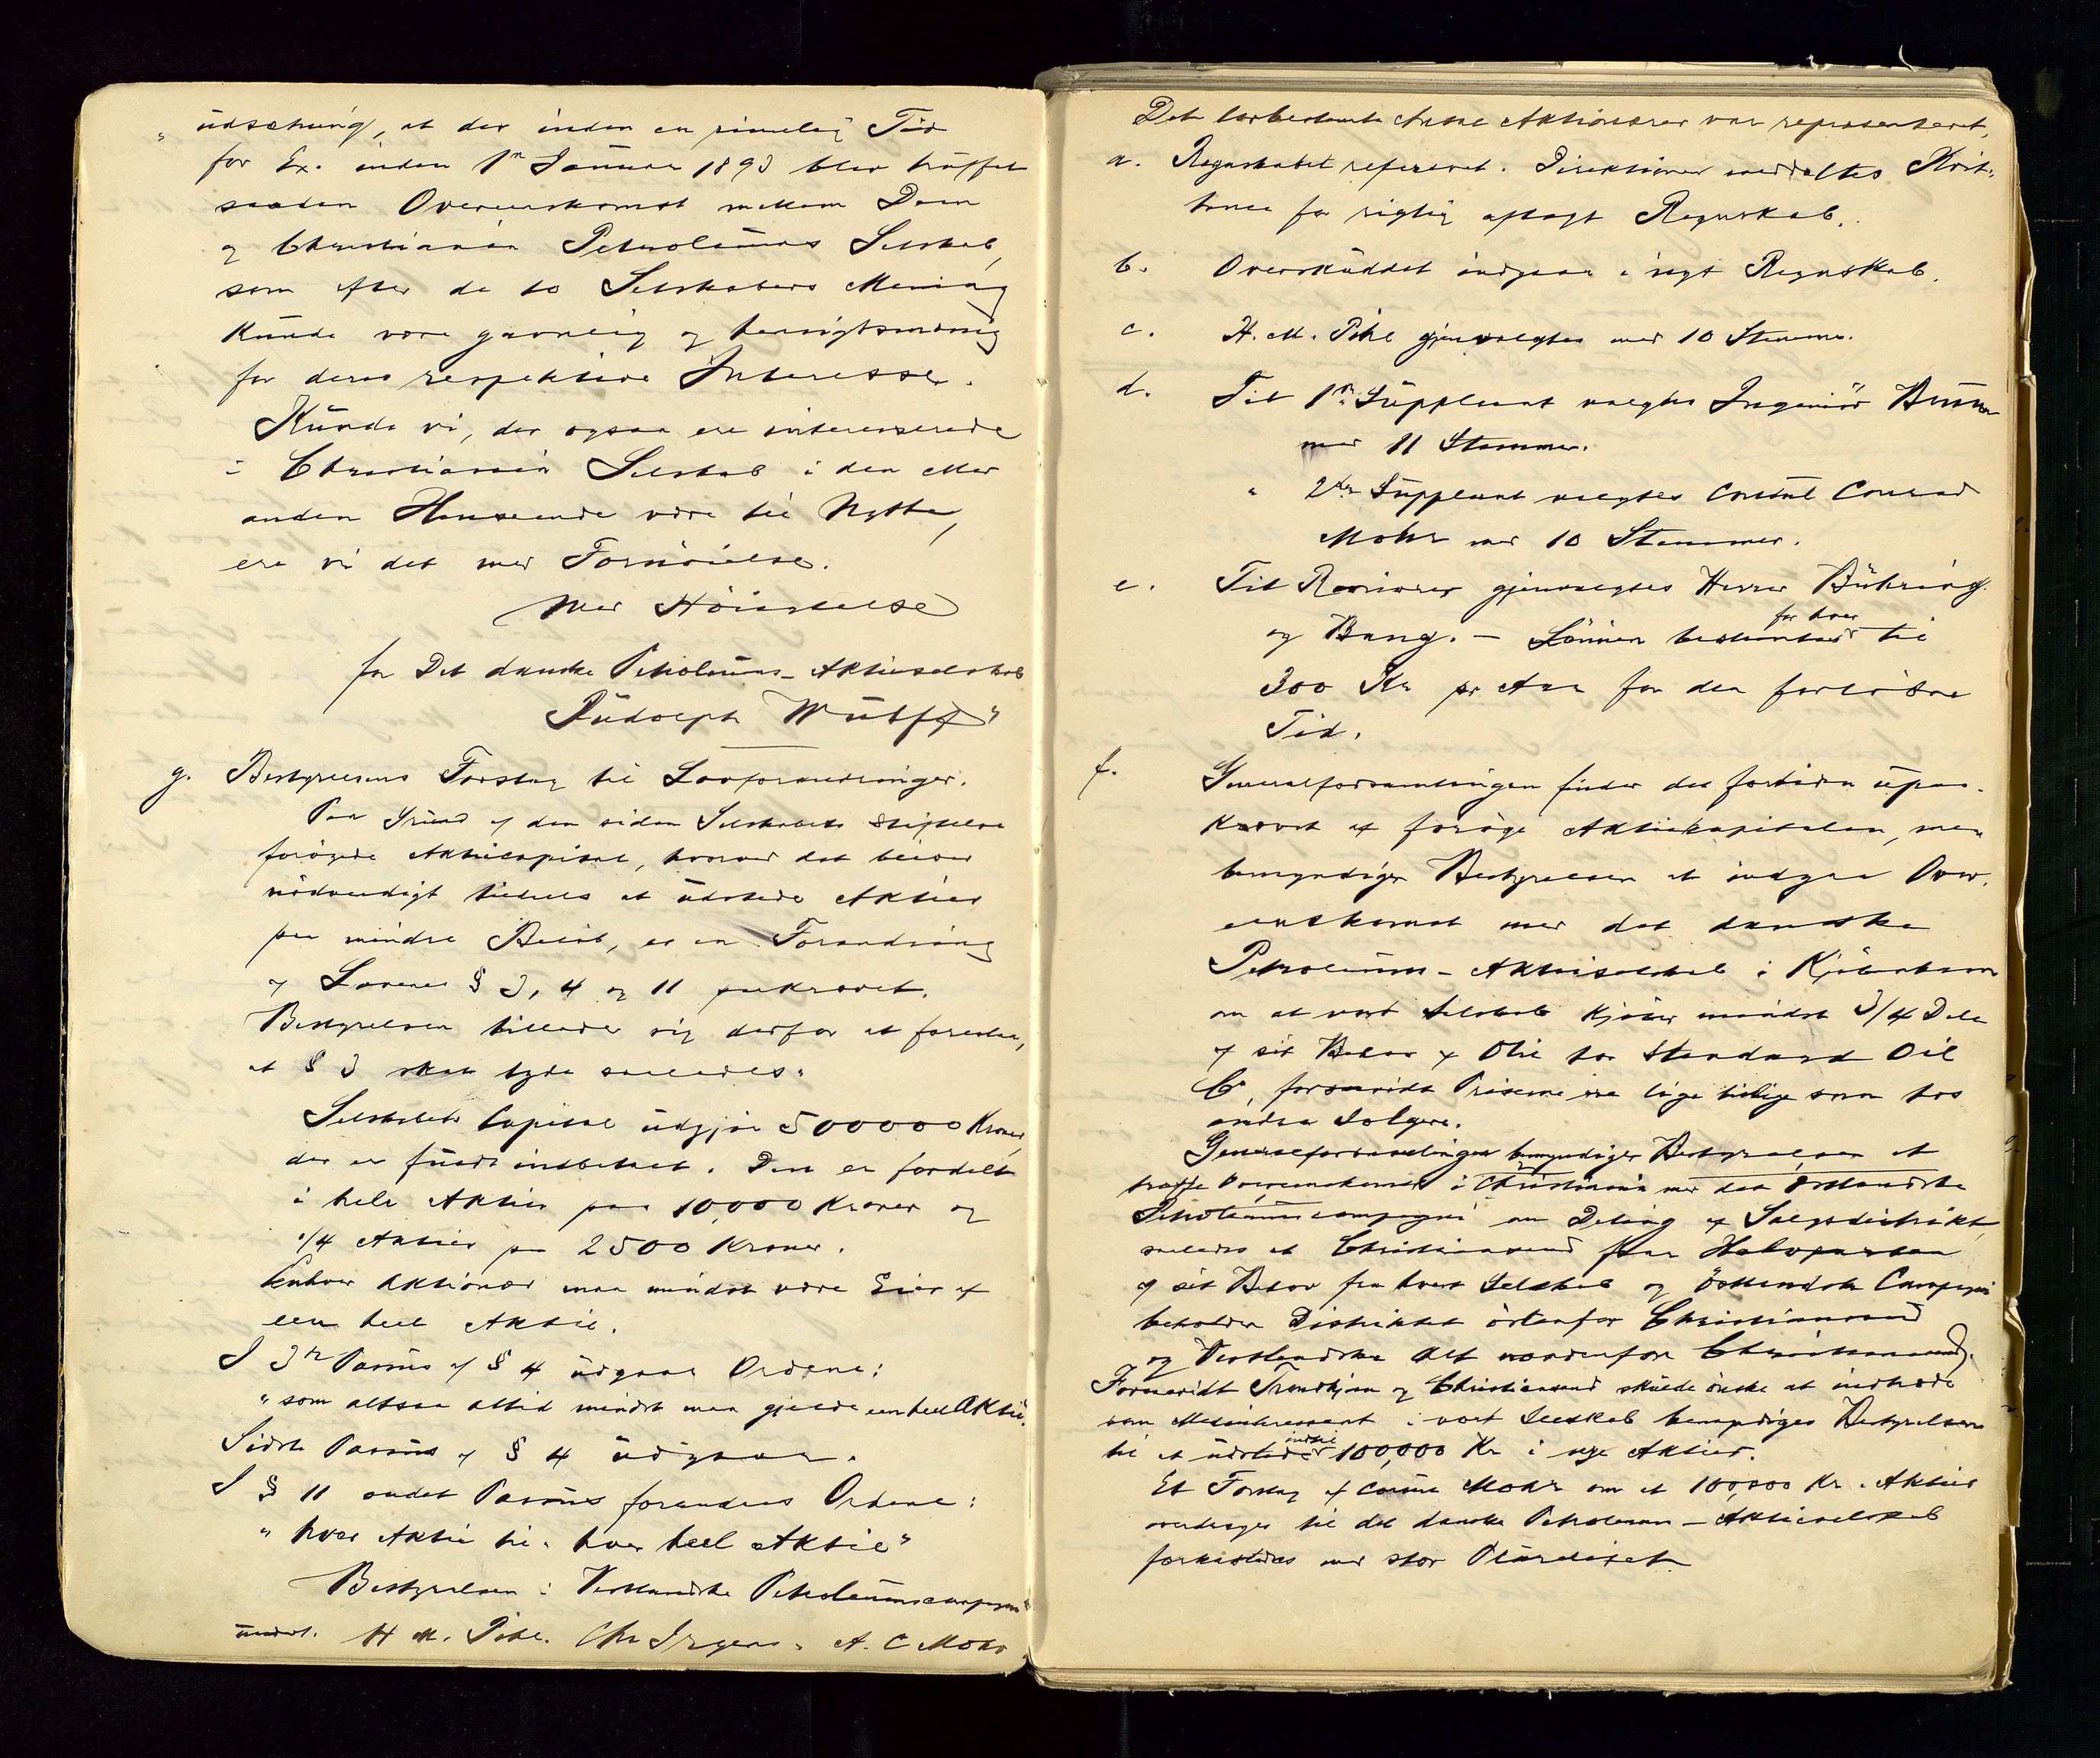 " üdsætning, at der inden en rimelig Tid
for Ex. inden 1n Januar 1893 blev truffet
saadan Overenskomst mellem Dem
og Christiania Petroleums Selskab,
som efter de to Selskabers Mening
kunde være gavnlig og hensigtsmæssig
for deres respektive Interesse.
Kunde vi, der ogsaa ere interesserede
i Christiania Selskab i den eller
anden Henseende være til Nytte,
ere vi det med Fornöielse.
Med Höiagtelse
for Det danske Petroleums-Aktieselskab
Rudolph Wulff"
g. Bestyrelsens Forslag til Lovforandringer.
Paa Grund af den siden Selskabets Stiftelse
forögede Aktiecapital, hvorved det bliver
nödvendigt tildels at udstede Aktier
paa mindre Belöb, er en Forandring
af Lovenes § 3, 4 og 11 paakrævet.
Bestyrelsen tillader sig derfor at foreslaa,
at § 3 skal lyde saaledes:
Selskabets Capital udgjör 500000 Kroner,
der er fuldt indbetalt. Den er fordelt
i hele Aktier paa 10,000 Kroner og
1/4 Aktier paa 2500 Kroner.
Enhver Aktionær maa mindst være Eier af
een heel Aktie.
I 3die Passus af § 4 udgaar Ordene:
" som altsaa altid mindst maa gjælde een heel Aktie."
Sidste Passus af § 4 udgaar.
I § 11 andet Passus forandres Ordene:
" hver Aktie til " hver heel Aktie"
Bestyrelsen i Vestlandske Petroleumscompagni"
undert. H. M. Pihl. Chr Irgens. A. C Mohr
Det lovbestemte Antal Aktionærer var repræsenteret.
a. Regnskabet refereret. Direktionen meddeltes Kvit-
tance for rigtig aflagt Regnskab.
b. Overskuddet indgaar i nyt Regnskab.
c. H. M. Pihl gjenvalgtes med 10 Stemmer.
d. Til 1ste Suppleant valgtes Ingeniör
med 11 Stemmer.
" 2den Suppleant valgtes Consul Conrad
Mohr med 10 Stemmer.
e. Til Revisorer gjenvalgtes Herrer Bühring
og Bang. — Lönnen bestemtes for hver til
300 Kr pr Aar for den forlöbne
Tid.
f. Generalforsamlingen finder det fortiden upaa-
krævet at foröge Aktiekapitalen, men
bemyndiger Bestyrelsen at indgaa Over-
enskomst med det danske
Petroleums-Aktieselskab i Kjöbenhavn
om at vort Selskab kjöber mindst 3/4 Dele
af sit Behov af Olie hos Standard Oil
Co, forsaavidt Priserne ere lige billige som hos
andre Sælgere.
Generalforsamlingen bemyndiger Bestyrelsen at
træffe Overenskomst i Christiania med det Östlandske
Petroleumscompagni om Deling af Salgsdistrikt,
saaledes at Christianssund faar Halvparten
af sit Behov fra hvert Selskab og Östlandske Compagni
beholder Distriktet östenfor Christianssand
og Vestlandske alt nordenfor Christianssund.
Forsaavidt Trondhjem og Christianssund skulde önske at indtræde
som Medinteressent i vort Selskab bemyndiges Bestyrelsen
til at udstede indtil 100,000 Kr i nye Aktier.
Et Forslag af Consul Mohr om at 100,000 Kr. Aktier
overdrages til det danske Petroleums-Aktieselskab
forkastedes med stor Pluralitet.